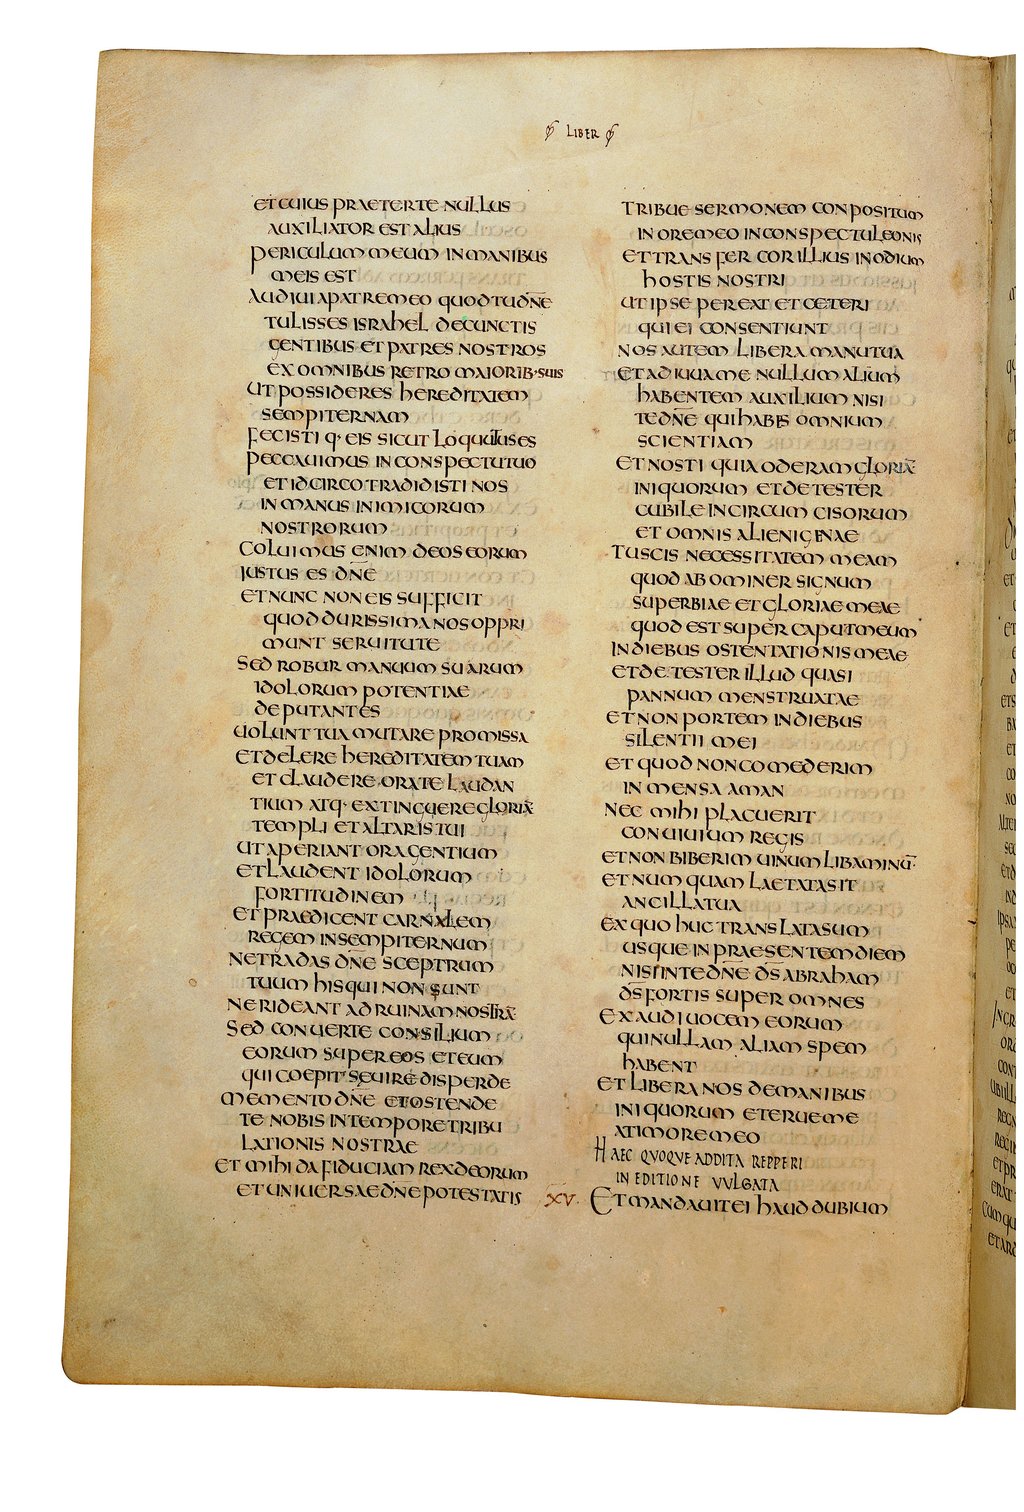 LIBER
ET CUIUS PRAETER TE NULLUS
AUXILIATOR EST ALIUS
PERICULUM MEUM IN MANIBUS
MEIS EST
AUDIUI A PATRE MEO QUOD TU DNE
TULISSES ISRAHEL DE CUNCTIS
GENTIBUS ET PATRES NOSTROS
EX OMNIBUS RETRO MAIORIB·SUIS
UT POSSIDERES HEREDITATEM
SEMPITERNAM
FECISTI Q· EIS SICUT LOQUUTUS ES
PECCAUIMUS IN CONSPECTU TUO
ET IDCIRCO TRADIDISTI NOS
IN MANUS INIMICORUM
NOSTRORUM
COLUIMUS ENIM DEOS EORUM
IUSTUS ES DNE
ET NUNC NON EIS SUFFICIT
QUOD DURISSIMA NOS OPPRI
MUNT SERUITUTE
SED ROBUR MANUUM SUARUM
IDOLORUM POTENTIAE
DEPUTANTES
UOLUNT TUA MUTARE PROMISSA
ET DELERE HEREDITATEM TUAM
ET CLAUDERE ORA TE LAUDAN
TIUM ATQ· EXTINGUERE GLORIA
TEMPLI ET ALTARIS TUI
UT APERIANT ORA GENTIUM
ET LAUDENT IDOLORUM
FORTITUDINEM
ET PRAEDICENT CARNALEM
REGEM IN SEMPITERNUM
NE TRADAS DNE SCEPTRUM
TUUM HIS QUI NON SUNT
NE RIDEANT AD RUINAM NOSTRA
SED CONUERTE CONSILIUM
EORUM SUPER EOS ET EUM
QUI COEPIT SEUIRE DISPERDE
MEMENTO DNE ET OSTENDE
TE NOBIS IN TEMPORE TRIBU
LATIONIS NOSTRAE
ET MIHI DA FIDUCIAM REX DEORUM
ET UNIUERSAE DNE POTESTATIS
TRIBUE SERMONEM CONPOSITUM
IN ORE MEO IN CONSPECTU LEONIS
ET TRANSFER COR ILLIUS IN ODIUM
HOSTIS NOSTRI
UT IPSE PEREAT ET CETERI
QUI EI CONSENTIUNT
NOS AUTEM LIBERA MANU TUA
ET ADIUUA ME NULLUM ALIUM
HABENTEM AUXILIUM NISI
TE DNE QUI HABIS OMNIUM
SCIENTIAM
ET NOSTI QUIA ODERAM GLORIA
INIQUORUM ET DETESTER
CUBILE INCIRCUMCISORUM
ET OMNIS ALIENIGENAE
TU SCIS NECESSITATEM MEAM
QUOD ABOMINER SIGNUM
SUPERBIAE ET GLORIAE MEAE
QUOD EST SUPER CAPUT MEUM
IN DIEBUS OSTENTATIONIS MEAE
ET DETESTER ILLUD QUASI
PANNUM MENSTRUATAE
ET NON PORTEM IN DIEBUS
SILENTII MEI
ET QUOD NON COMEDERIM
IN MENSA AMAN
NEC MIHI PLACUERIT
CONUIUIUM REGIS
ET NON BIBERIM UINUM LIBAMINU·
ET NUMQUAM LAETATA SIT
ANCILLA TUA
EX QUO HUC TRANSLATA SUM
USQUE IN PRAESENTEM DIEM
NISI IN TE DNE DS ABRAHAM
DS FORTIS SUPER OMNES
EXAUDI UOCEM EORUM
QUI NULLAM ALIAM SPEM
HABENT
ET LIBERA NOS DE MANIBUS
INIQUORUM ET ERUE ME
A TIMORE MEO
HAEC QVOQVE ADDITA REPPERI
IN EDITIONE VVLGATA
XV· ET MANDAUIT EI HAUD DUBIUM